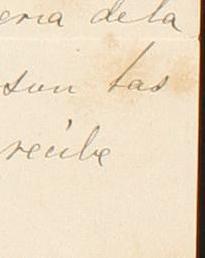 eria dela
son las
recibe